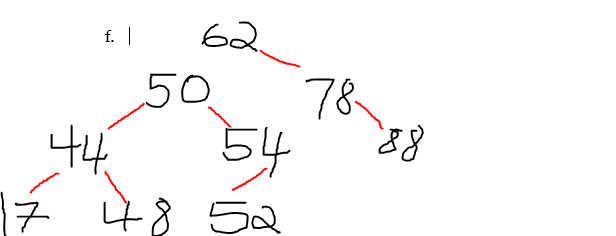 f. 62
50 78
44 54 88
17 48 52